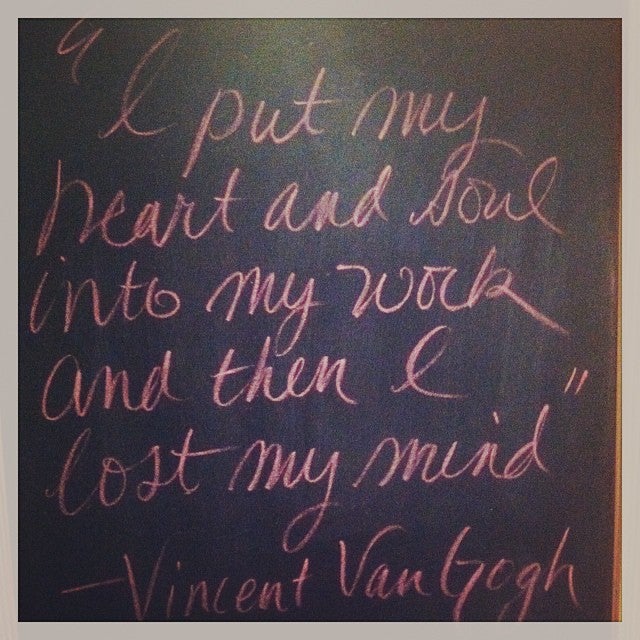 "I put my
heart and soul
into my work
and then I
lost my mind"
-Vincent Van Gogh